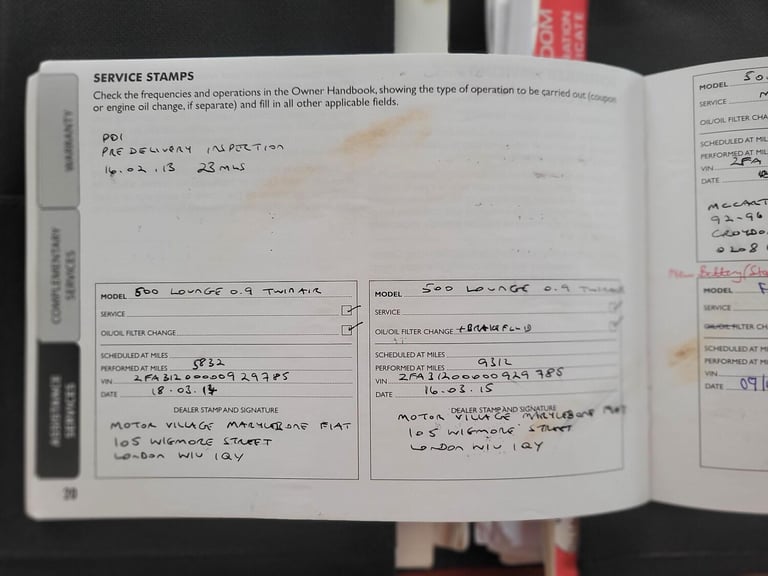 DOM
ATION
ICATE
WARRANTY
COMPLEMENTARY
SERVICES
ASSISTANCE
SERVICES
SERVICE STAMPS
Check the frequencies and operations in the Owner Handbook, showing the type of operation to be carried out (coupon
or engine oil change, if separate) and fill in all other applicable fields.
PDI
PRE DELIVERY INSPECTION
16.02.13 23MLS
MODEL 500 LOUNGE 0.9 TWINAIR
SERVICE
OIL/OIL FILTER CHANGE
SCHEDULED AT MILES
PERFORMED AT MILES 5832
VIN 2FA31200000929785
DATE 18.03.14
DEALER STAMP AND SIGNATURE
MOTOR VILLAGE MARYLEBONE FIAT
105 WIGMORE STREET
LONDON W1U 1QY
MODEL 500 LOUNGE 0.9 TWINAIR
SERVICE
OIL/OIL FILTER CHANGE + BRAKE FLUID
SCHEDULED AT MILES
PERFORMED AT MILES 9312
VIN 2FA31200000929785
DATE 16.03.15
DEALER STAMP AND SIGNATURE
MOTOR VILLAGE MARYLEBONE
105 WIGMORE STREET
LONDON W1U 1QY
20
MODEL 50
SERVICE
OIL/OIL FILTER CHA
SCHEDULED AT MIL
PERFORMED AT MIL
VIN ZFA
DATE
MCCART
92-96
CROYDO
0208
Battery
MODEL F
SERVICE
FILTER CH
SCHEDULED AT M
PERFORMED AT M
VIN
DATE 09/